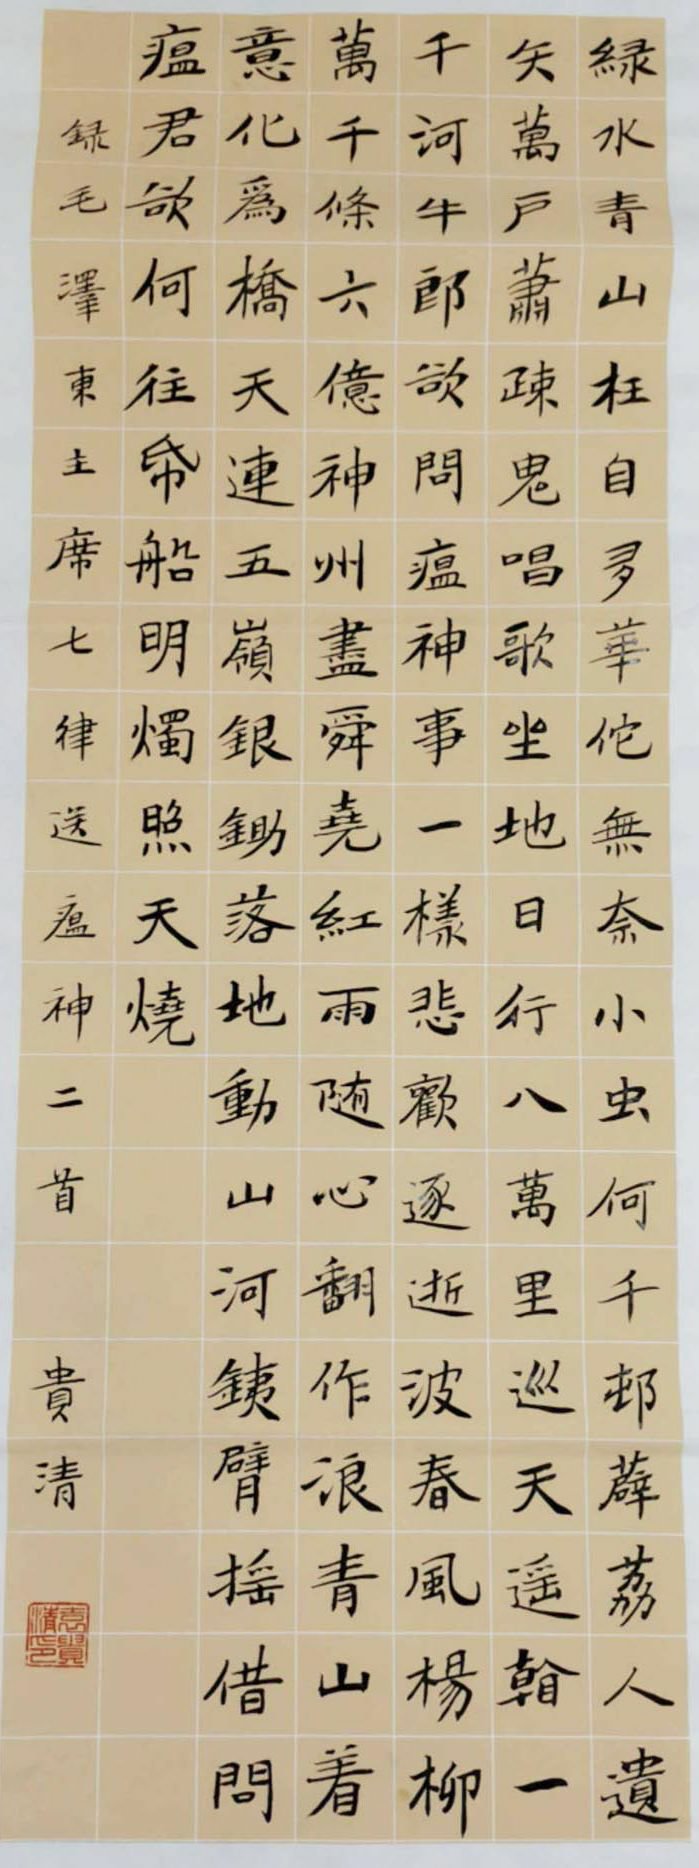 緑水青山枉自多華佗無奈小虫何千邨薜荔人遺
矢萬户蕭疎鬼唱歌坐地日行八萬里巡天遥看一
千河牛郎欲問瘟神事一樣悲歡逐逝波春風楊柳
萬千條六億神州盡舜堯紅雨随心翻作浪青山着
意化爲橋天連五嶺銀鋤落地動山河銕臂摇借問
瘟君欲何往帋船明燭照天燒
録毛澤東主席七律送瘟神二首 貴清
袁貴清印